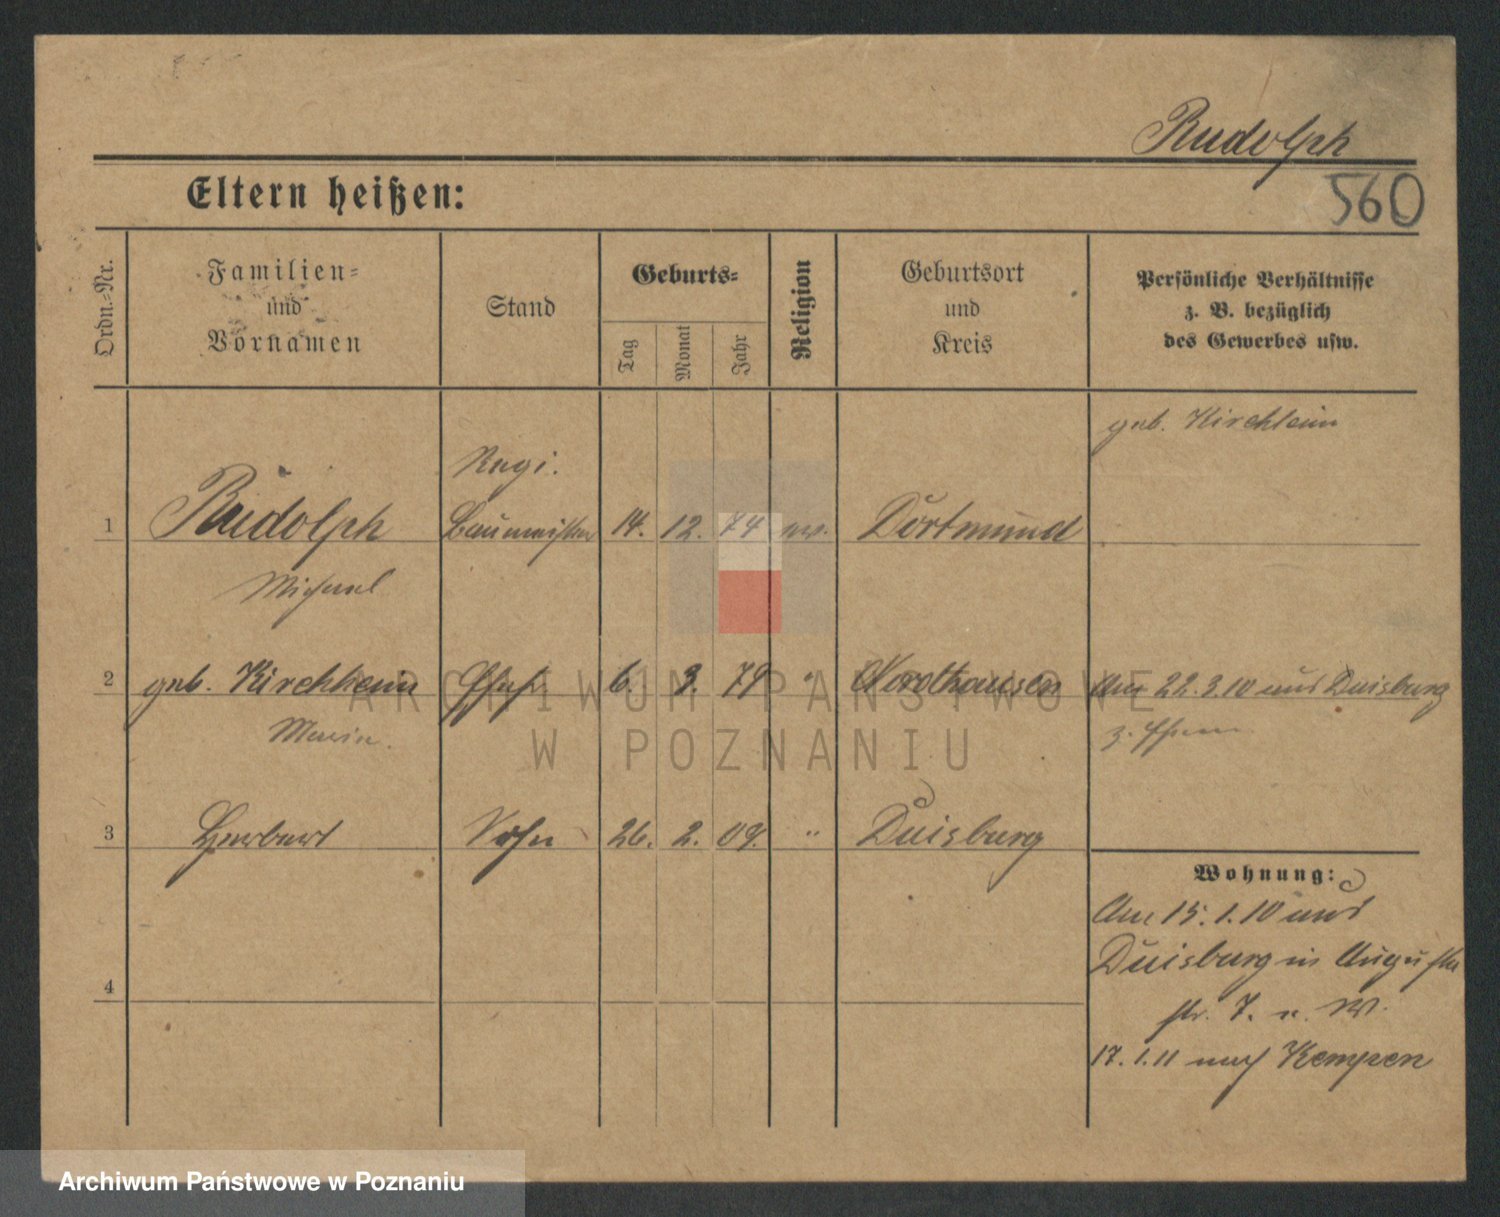 Rudolph
Eltern heißen:
560
Ordn.-Nr.
Familien-
und
Vornamen
Stand
Geburts-
Tag
Monat
Jahr
Religion
Geburtsort
und
Kreis
Persönliche Verhältnisse
z. B. bezüglich
des Gewerbes usw.
geb. Kirchheim
Regi.
1 Rudolph Baumeister 14. 12. 74 ev. Dortmund
Michael
2 geb. Kirchheim Ehefr. 6. 3. 79 " Nordhausen Am 22.3.10 aus Duisburg
z. Ehem
3 Herbert Sohn 26. 2. 09. " Duisburg
Wohnung:
Am 15.1.10 aus
Duisburg in Augusta
4
str. 7. n. W.
17.1.11 nach Kempen
ARCHIWUM PAŃSTWOWE
W POZNANIU
Archiwum Państwowe w Poznaniu